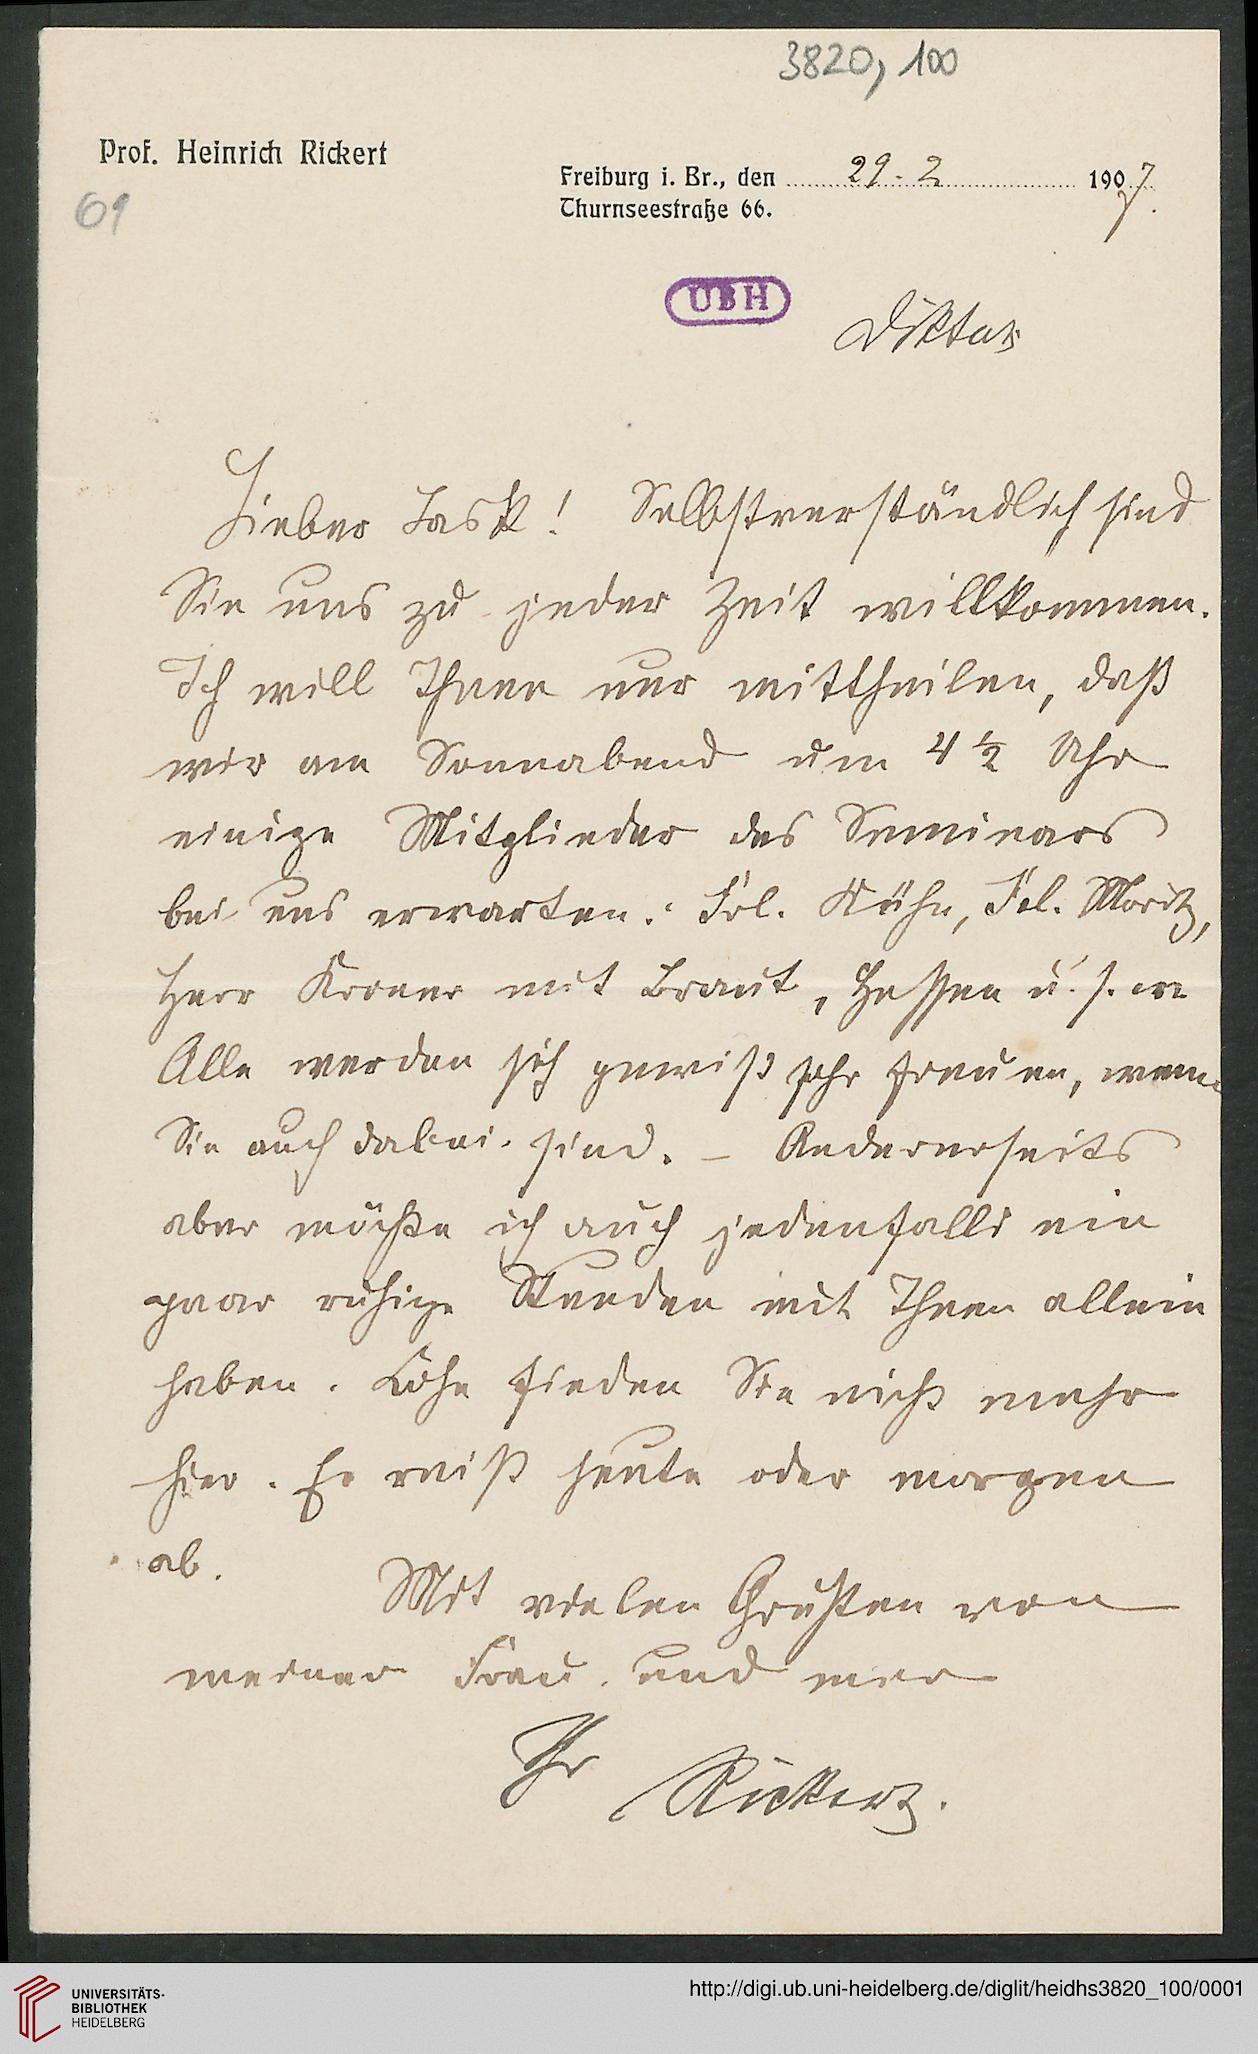 3820, 100
Prof. Heinrich Rickert
Freiburg i. Br., den 29. 2. 1907.
Thurnseestraße 66.
69
UBH
Diktat
Lieber Lask! Selbstverständlich sind
Sie uns zu jeder Zeit willkommen.
Ich will Ihnen nur mittheilen, daß
wir am Sonnabend um 4 ½ Uhr
einige Mitglieder des Seminars
bei uns erwarten: Frl. Kühn, Frl. Moritz,
Herr Kroner mit Braut, Hessen u. s. w.
Alle werden sich gewiß sehr freuen, wenn
Sie auch dabei sind. – Andererseits
aber möchte ich auch jedenfalls ein
paar ruhige Stunden mit Ihnen allein
haben. finden Sie nicht mehr
hier. Er reist heute oder morgen
ab.
Mit vielen Grüßen von
meiner Frau und mir
Ihr Rickert.
UNIVERSITÄTS-
BIBLIOTHEK
HEIDELBERG
http://digi.ub.uni-heidelberg.de/diglit/heidhs3820_100/0001